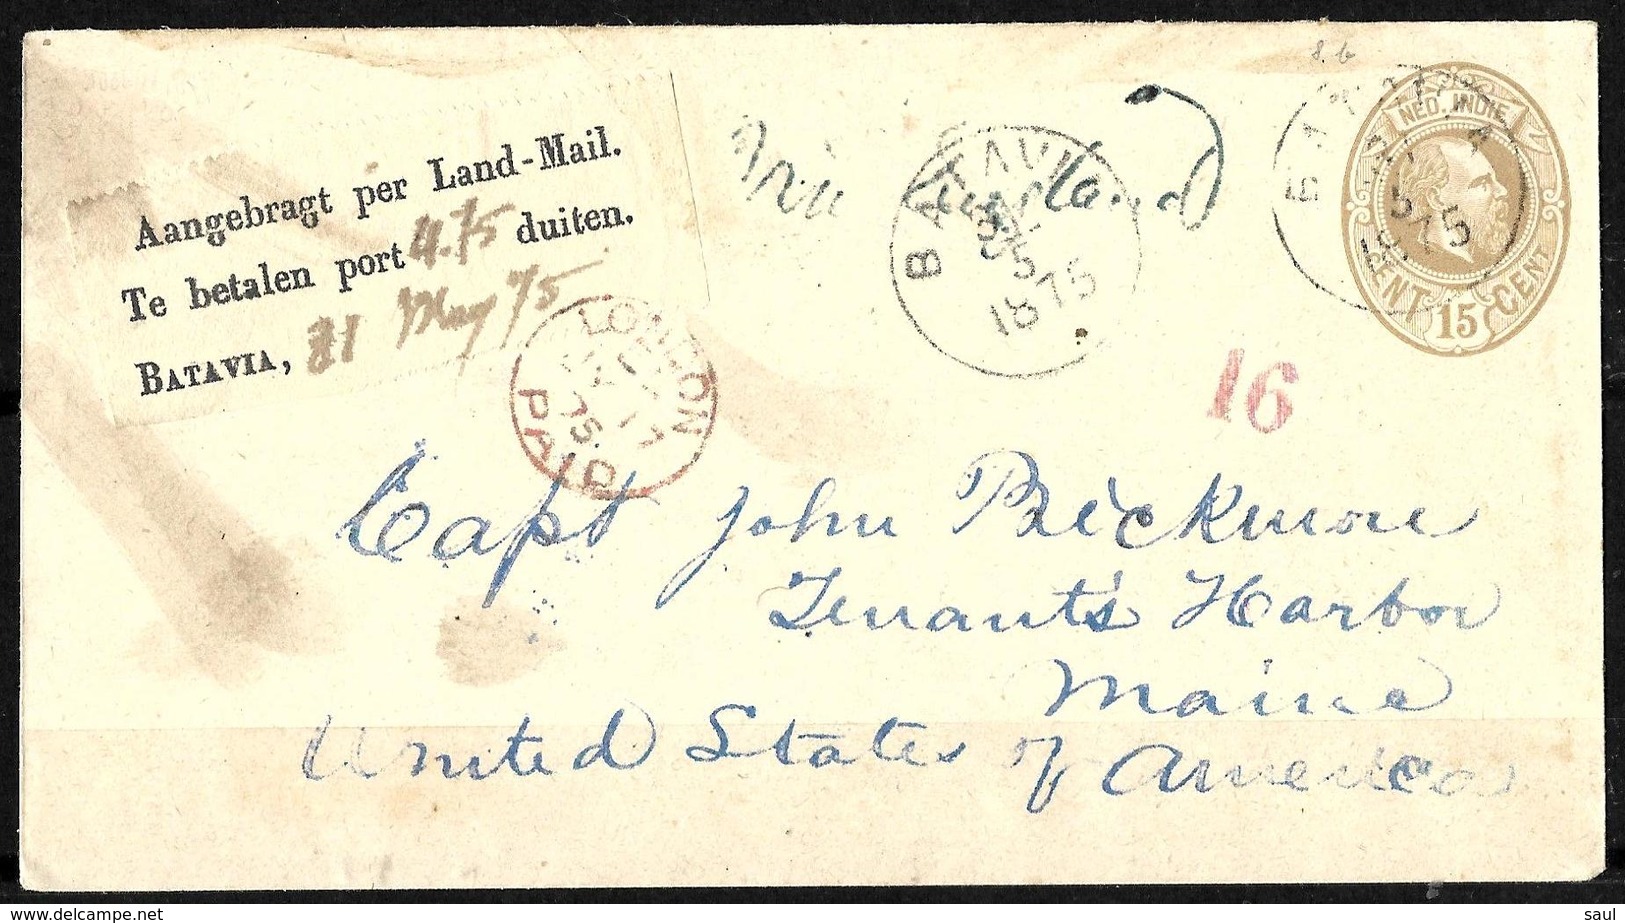 8.b
Aangebragt per Land-Mail.
Te betalen port 4.75 duiten.
BATAVIA, 21 May 75
BATAVIA
5
1875
BATAVIA
5
1875
NED. INDIE
CENT 15 CENT
LONDON
17
75
PAID
16
Capt John Bickmore
Tenants Harbor
Maine
United States of America
© delcampe.net
saul